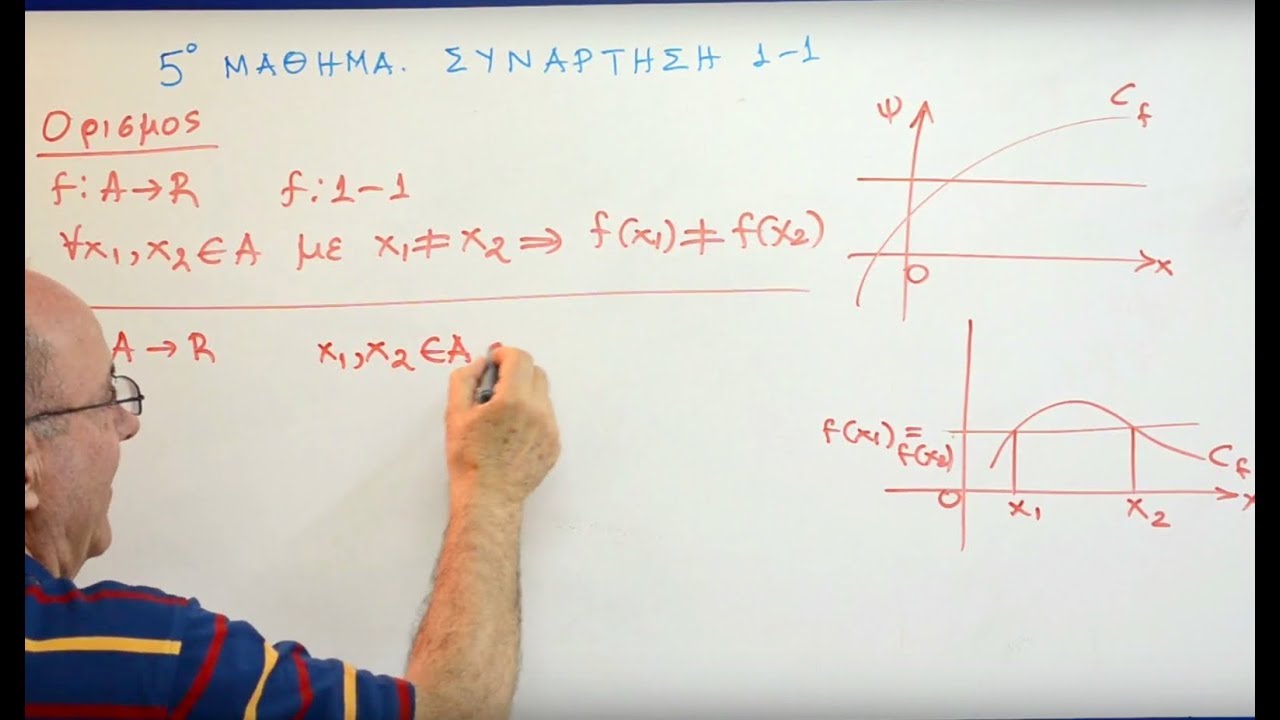 5° ΜΑΘΗΜΑ. ΣΥΝΑΡΤΗΣΗ 1-1
Ορισμος
f: A→R f: 1-1
∀x₁, x₂ ∈ A με x₁ ≠ x₂ ⇒ f(x₁) ≠ f(x₂)
A → R x₁, x₂ ∈ A
ψ
C_f
x
O
f(x₁) =
f(x₂)
C_f
O
x₁
x₂
x